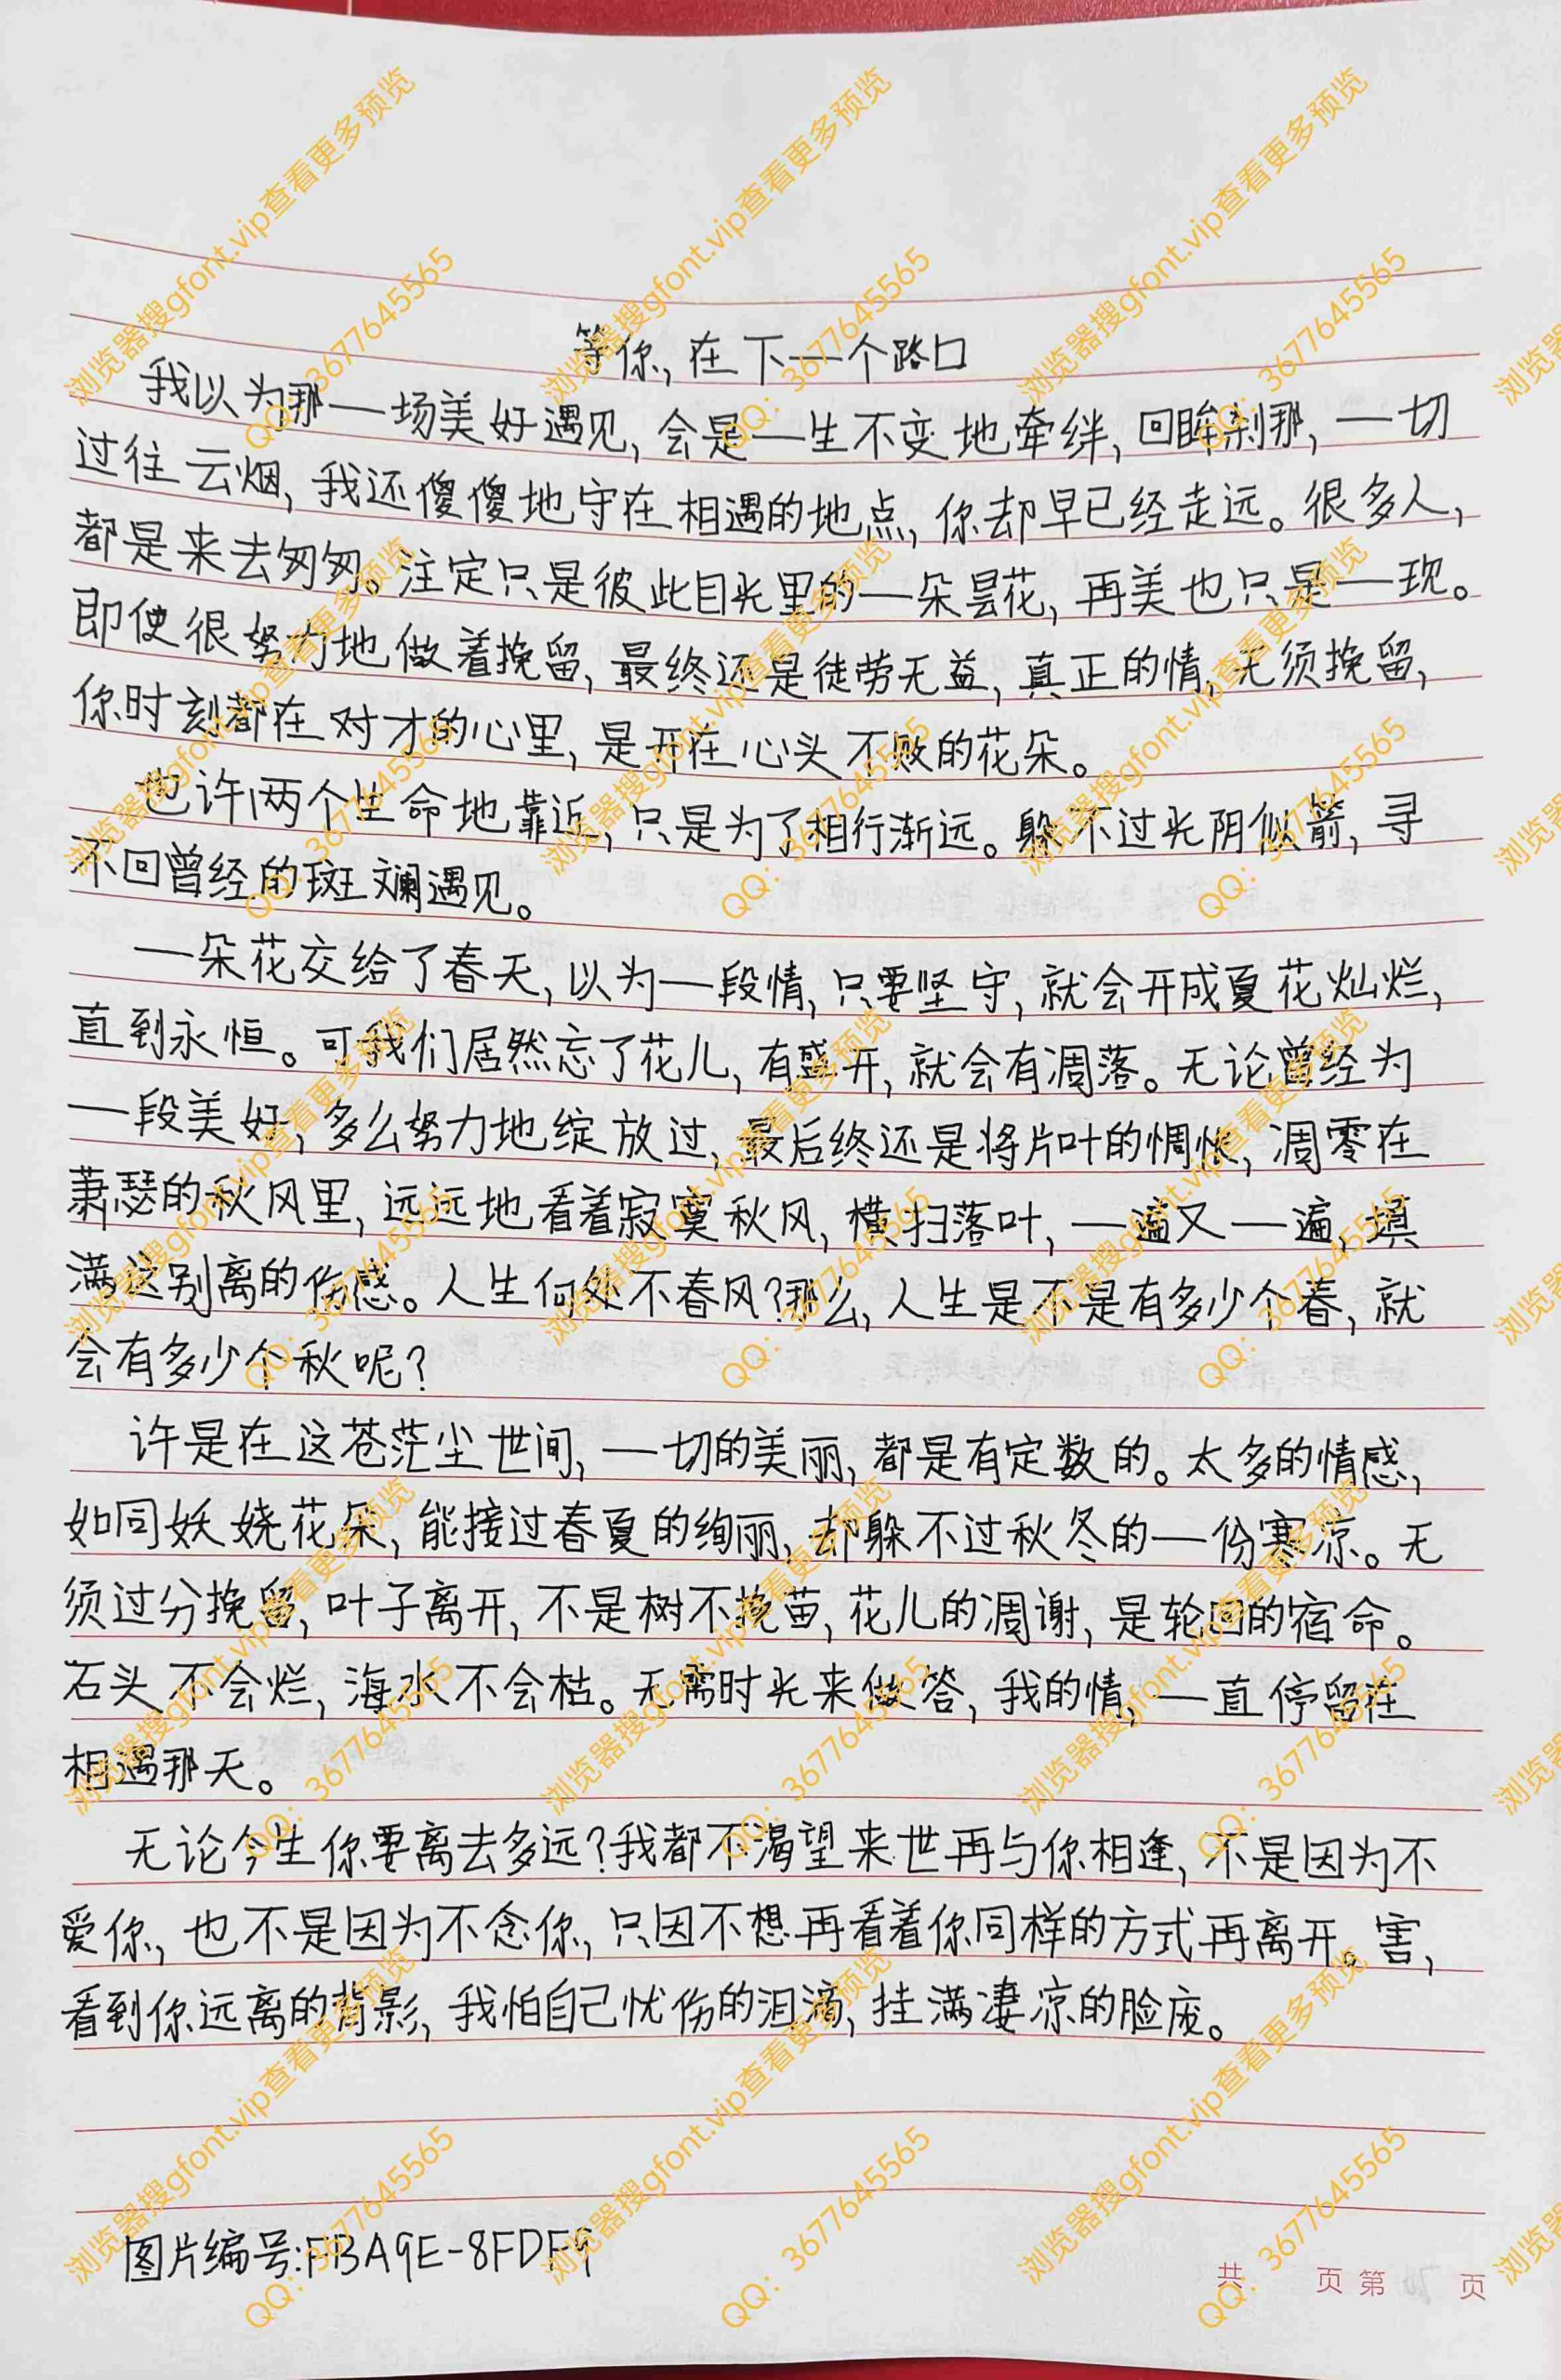 等你,在下一个路口
我以为那一场美好遇见,会是一生不变地牵绊,回眸刹那,一切
过往云烟,我还傻傻地守在相遇的地点,你却早已经走远。很多人,
都是来去匆匆。注定只是彼此目光里的一朵昙花,再美也只是一现。
即使很努力地做着挽留,最终还是徒劳无益,真正的情,无须挽留,
你时刻都在对才的心里,是开在心头不败的花朵。
也许两个生命地靠近,只是为了相行渐远。躲不过光阴似箭,寻
不回曾经的斑斓遇见。
一朵花交给了春天,以为一段情,只要坚守,就会开成夏花灿烂,
直到永恒。可我们居然忘了花儿,有盛开,就会有凋落。无论曾经为
一段美好,多么努力地绽放过,最后终还是将片叶的惆怅,凋零在
萧瑟的秋风里,远远地看着寂寞秋风,横扫落叶,一遍又一遍,填
满这别离的伤感。人生何处不春风?那么,人生是不是有多少个春,就
会有多少个秋呢?
许是在这苍茫尘世间,一切的美丽,都是有定数的。太多的情感,
如同妖娆花朵,能接过春夏的绚丽,却躲不过秋冬的一份寒凉。无
须过分挽留,叶子离开,不是树不挽苗,花儿的凋谢,是轮回的宿命。
石头不会烂,海水不会枯。无需时光来做答,我的情,一直停留在
相遇那天。
无论今生你要离去多远?我都不渴望来世再与你相逢,不是因为不
爱你,也不是因为不念你,只因不想再看着你同样的方式再离开。害,
看到你远离的背影,我怕自己忧伤的泪滴,挂满凄凉的脸庞。
图片编号:FBA9E-8FDF9
共 页 第 页
浏览器搜gfont.vip查看更多预览
QQ: 3677645565